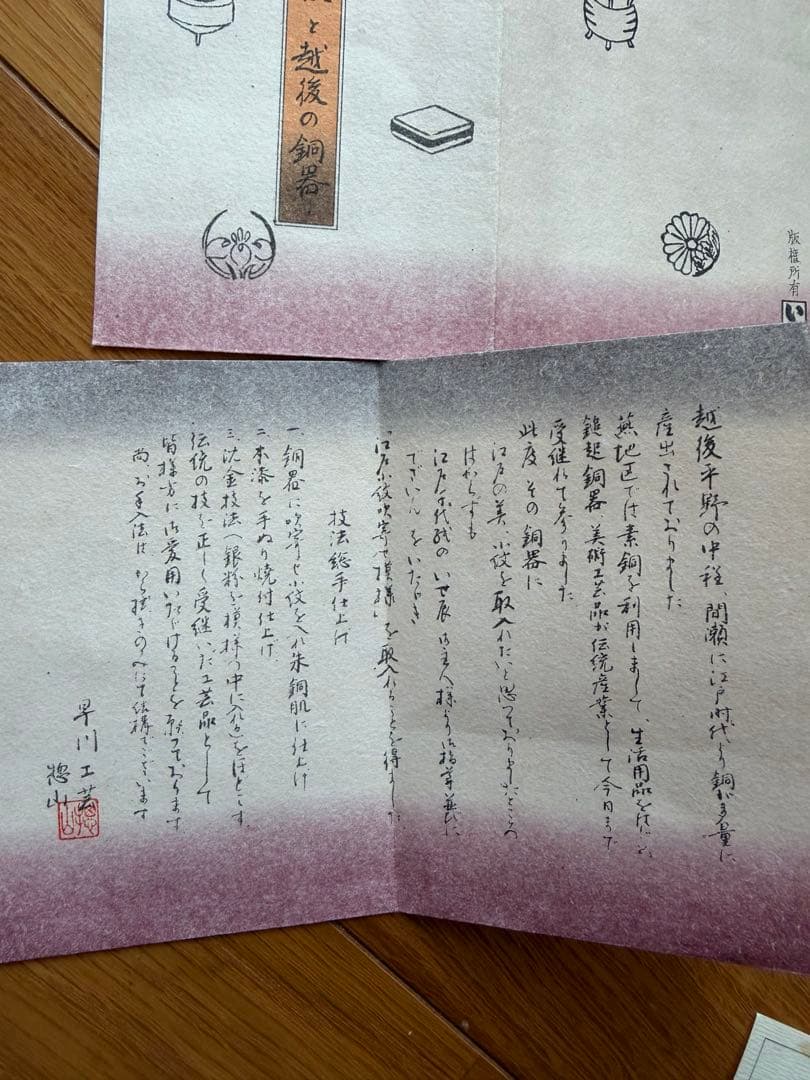 と越後の銅器
版権所有
い
越後平野の中程、間瀬に江戸時代より銅が多量に
産出されておりました
燕地区では素銅を利用しまして、生活用品をはじめ、
鎚起銅器、美術工芸品が伝統産業として今日まで
受継れて参りました
此度その銅器に
江戸の美、小紋を取入れたいと思っておりましたところ
はからずも
江戸千代紙のいせ辰御主人様より御指導並に
でざいんをいただき
「江戸小紋吹寄せ模様」を取入れることを得ました
技法総手仕上げ
一、銅器に吹寄せ小紋を入れ朱銅肌に仕上げ
二、本漆を手ぬり焼付仕上げ
三、沈金技法(銀粉を模様の中に入れる)をほどこす
伝統の技を正しく受継いだ工芸品として
皆様方に御愛用いただけることを願っております
尚、お手入法はから拭きのみにて結構でございます
早川工芸
惣山